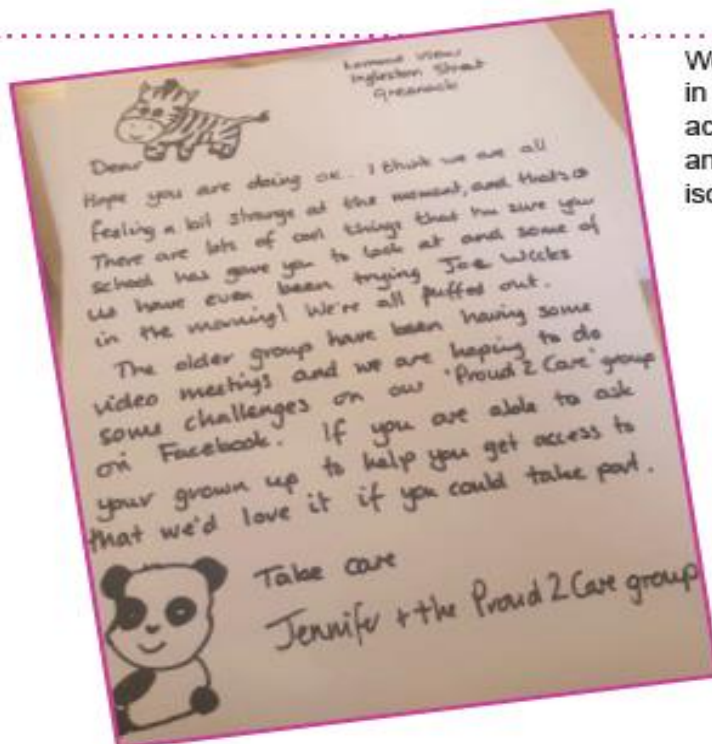 Lomond View
Ingleston Street
Greenock
Dear
Hope you are doing ok. I think we are all
feeling a bit strange at the moment, and thats ok
There are lots of cool things that I'm sure your
school has gave you to look at and some of
us have even been trying Joe Wicks
in the morning! We're all puffed out.
The older group have been having some
video meetings and we are hoping to do
some challenges on our "Proud 2 Care" group
on Facebook. If you are able to ask
your grown up to help you get access to
that we'd love it if you could take part.
Take care
Jennifer + the Proud 2 Care group
in
ac
an